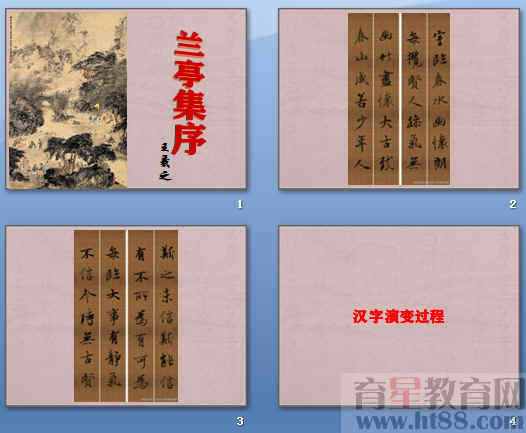 兰亭集序
王羲之
1
室臨春水幽懷朗
每攬賢人躁氣無
幽竹盡懷大古致
春山咸若少年人
2
斯之未信斯能信
有不所為有可為
每臨大事有靜氣
不信今時無古賢
3
汉字演变过程
4
育星教育网
www.ht88.com